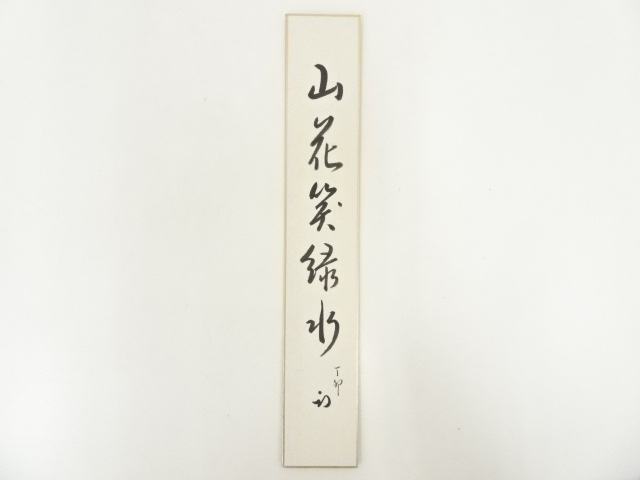 山花笑緑水
丁卯